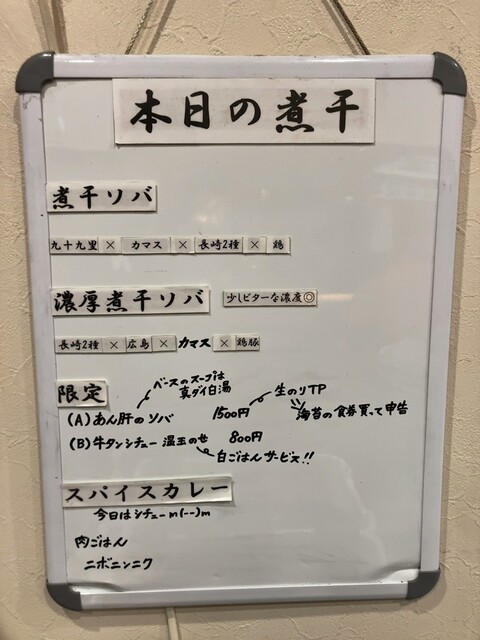 本日の煮干
煮干ソバ
九十九里 × カマス × 長崎2種 × 鶏
濃厚煮干ソバ 少しビターな濃度◎
長崎2種 × 広島 × カマス × 鶏豚
限定
ベースのスープは
真ダイ白湯
生のりTP
(A) あん肝のソバ 1500円 海苔の食券買って申告
(B) 牛タンシチュー 温玉のせ 800円
白ごはんサービス!!
スパイスカレー
今日はシチューm(--)m
肉ごはん
ニボニンニク